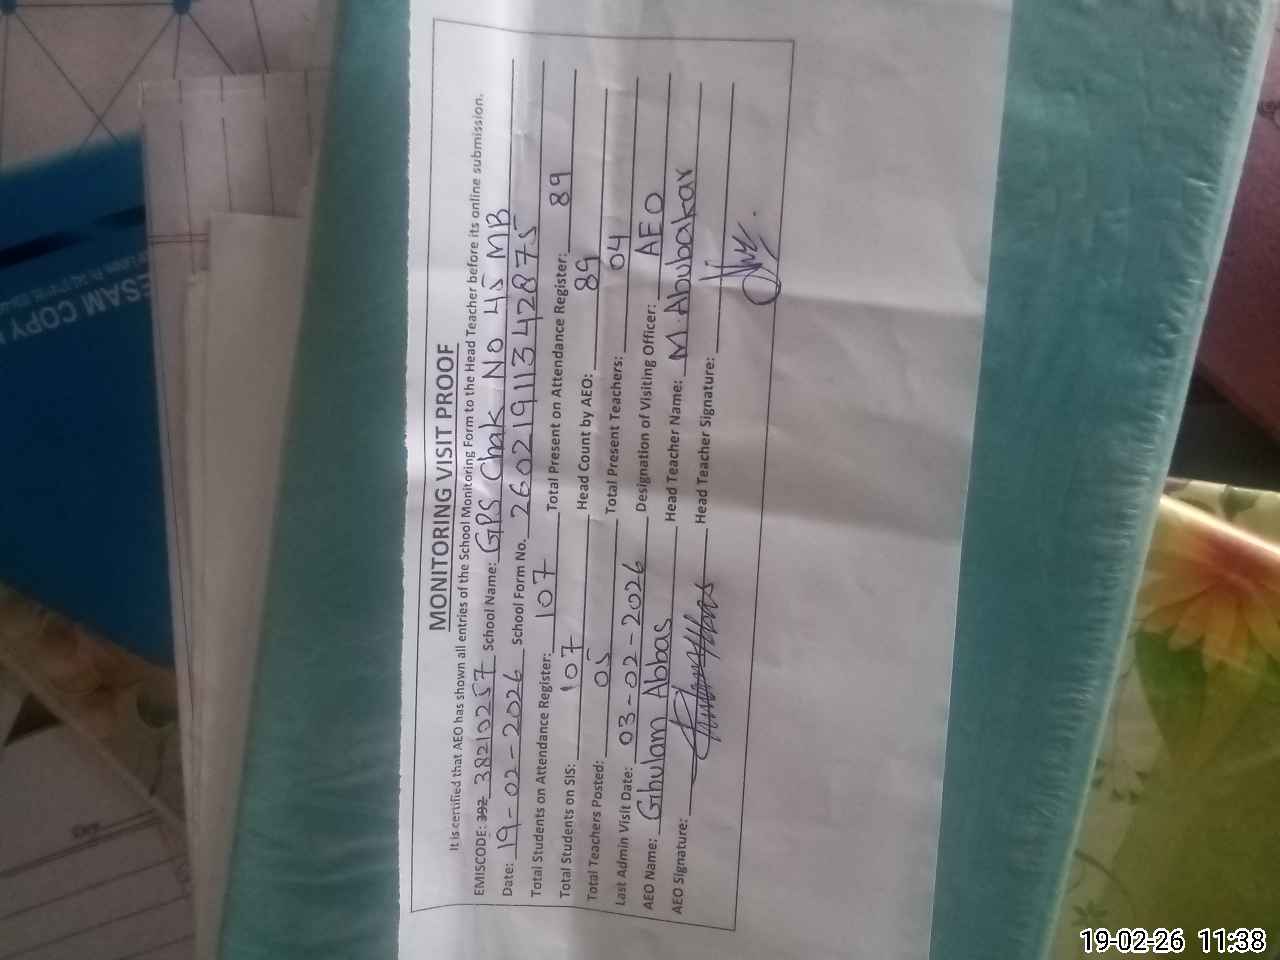 MONITORING VISIT PROOF
It is certified that AEO has shown all entries of the School Monitoring Form to the Head Teacher before its online submission.
EMISCODE: 392 38210257 School Name: GPS Chak No 45 MB
Date: 19-02-2026 School Form No. 260219113428 75
Total Students on Attendance Register: 107 Total Present on Attendance Register: 89
Total Students on SIS: 107 Head Count by AEO: 89
Total Teachers Posted: 05 Total Present Teachers: 04
Last Admin Visit Date: 03-02-2026 Designation of Visiting Officer: AEO
AEO Name: Ghulam Abbas Head Teacher Name: M.Abubakar
AEO Signature: Head Teacher Signature:
ESAM COPY
19-02-26 11:38